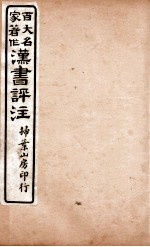 百大名
家著作
漢書評注
掃葉山房印行